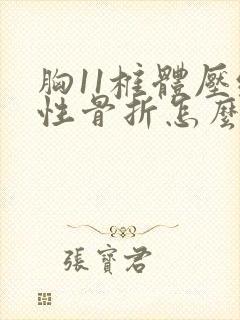 胸11椎體壓
性骨折怎麼
張寶君